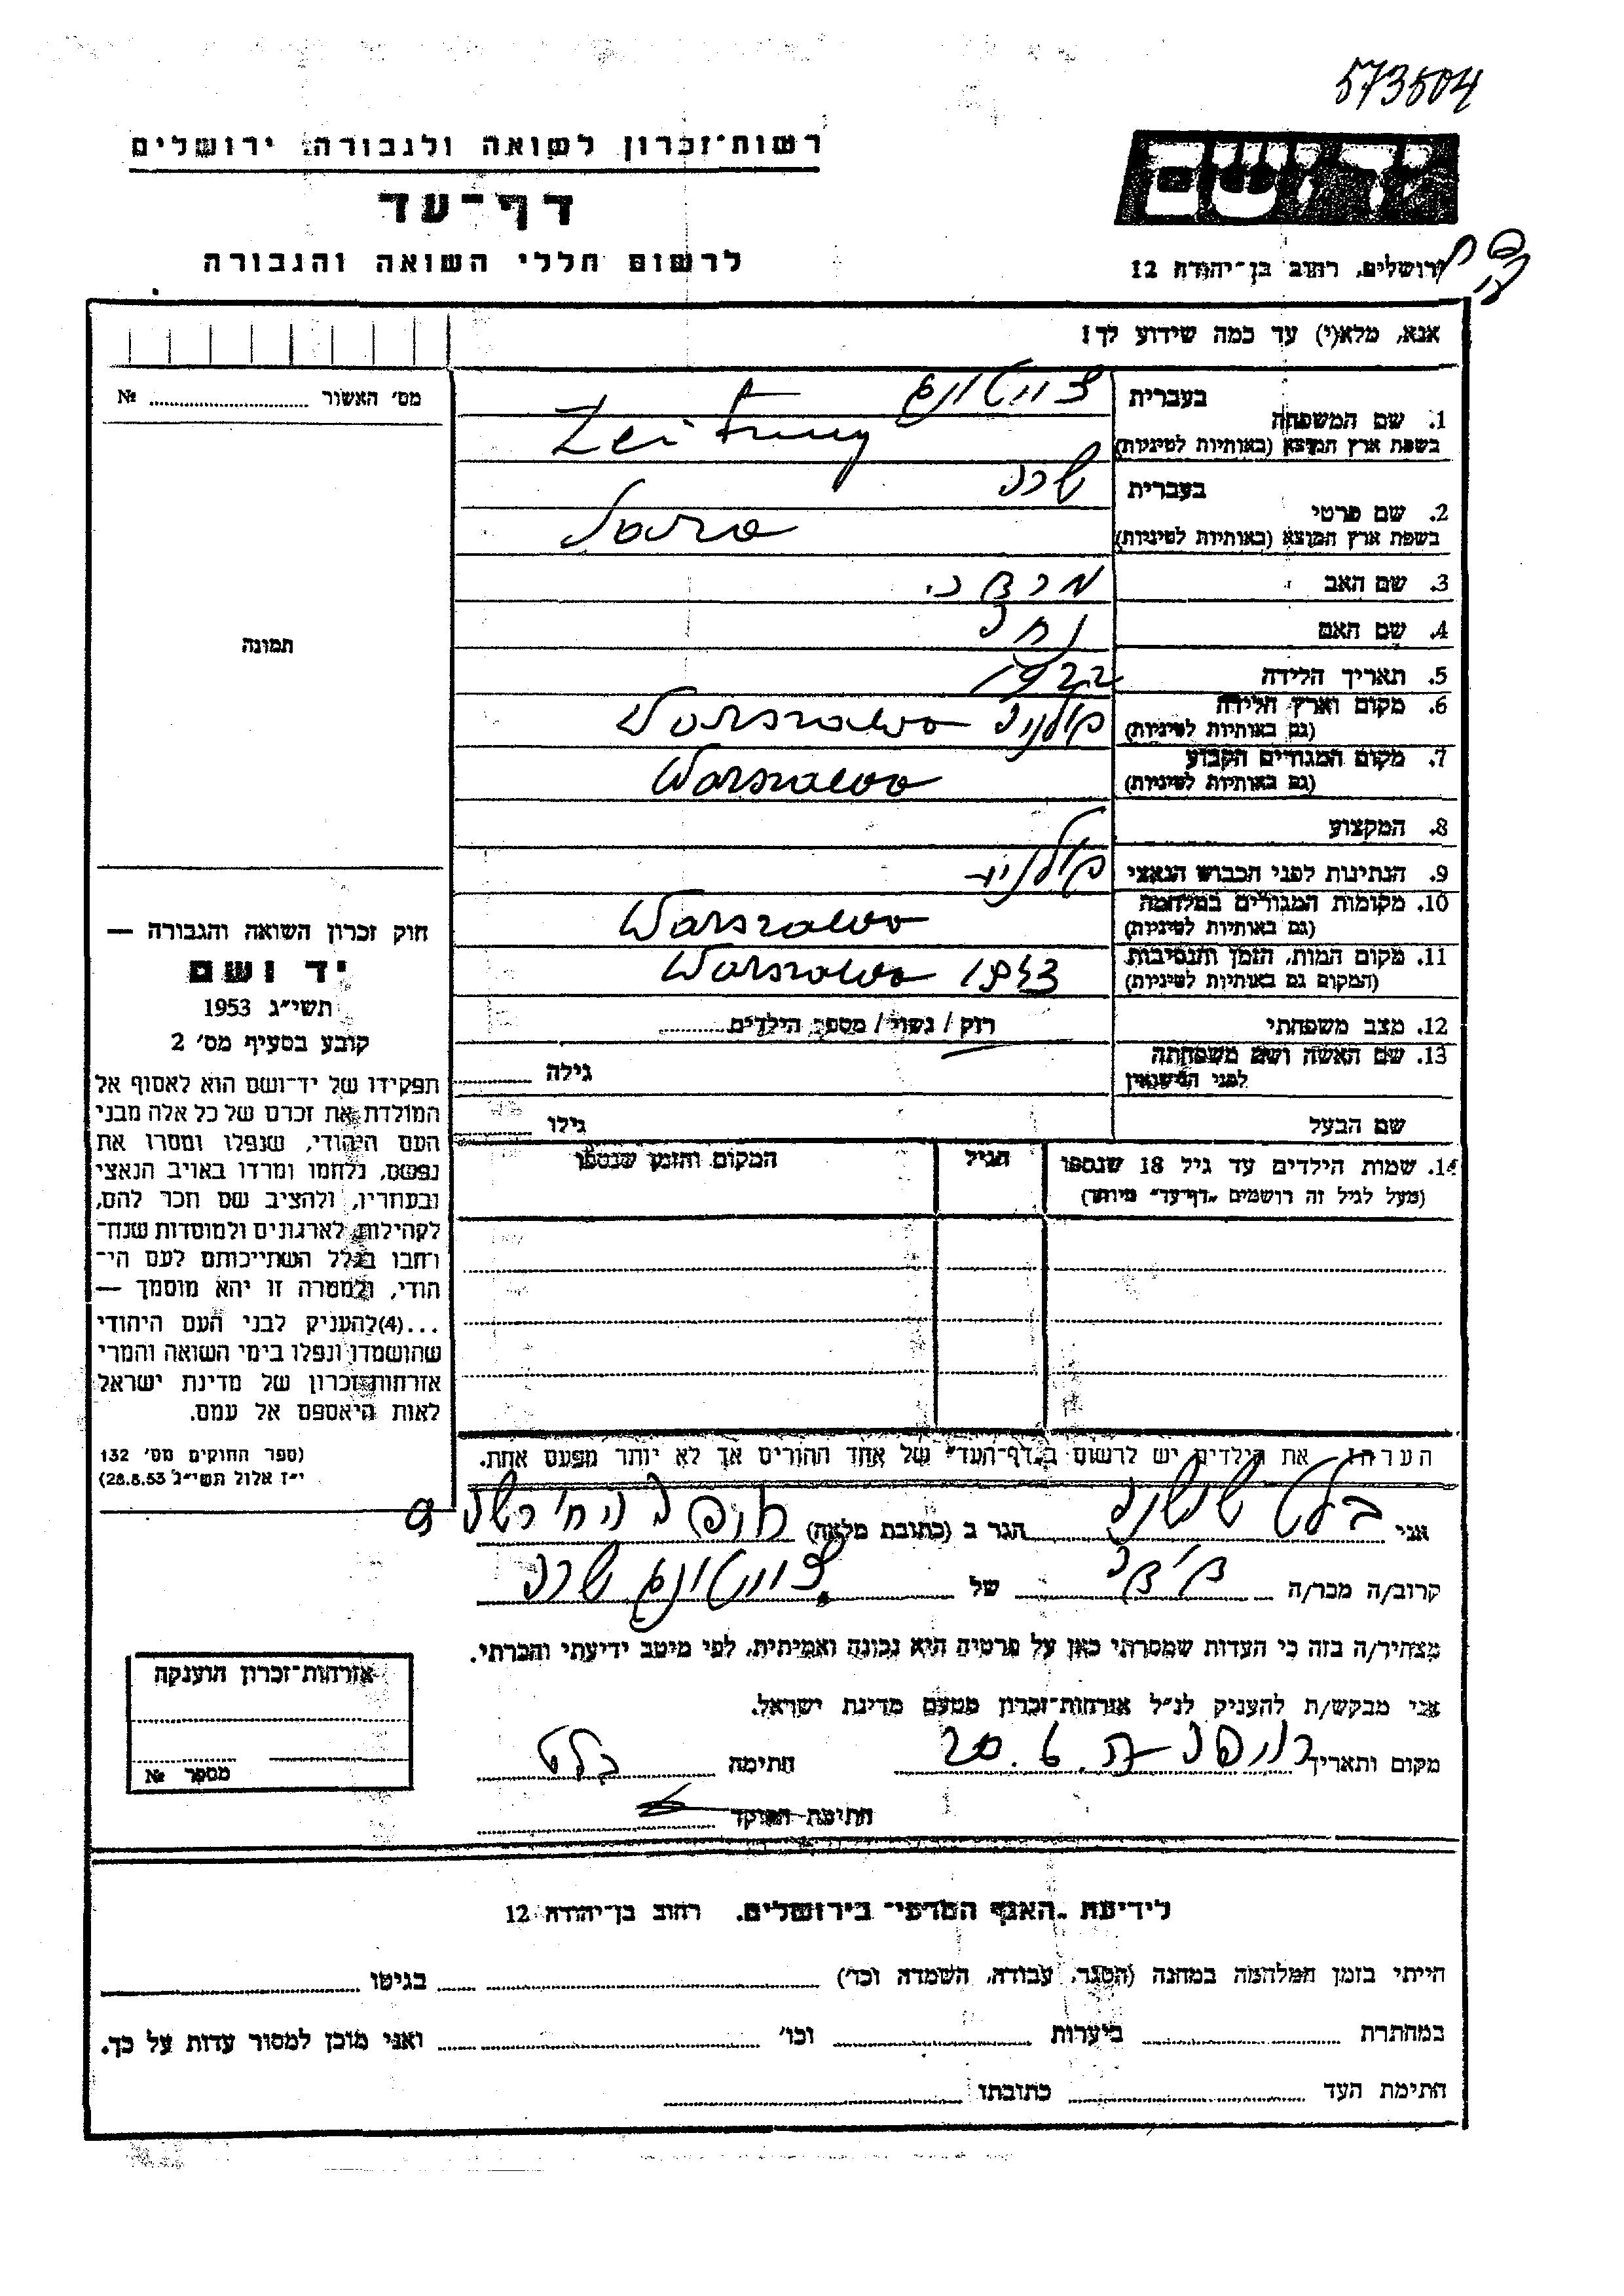 573504
רשות־זכרון לשואה ולגבורה, ירושלים
יד ושם
דף־עד
לרשום חללי השואה והגבורה
ירושלים, רחוב בן־יהודה 12
אנא, מלא(י) עד כמה שידוע לך!
מס׳ האשור № 
1. שם המשפחה בעברית צייטונג
בשפת ארץ המוצא (באותיות לטיניות) Zeitung
2. שם פרטי בעברית שרה
בשפת ארץ המוצא (באותיות לטיניות) Sara
3. שם האב מרדכי
4. שם האם
תמונה
5. תאריך הלידה 1922
6. מקום וארץ הלידה (גם באותיות לטיניות) פולניה Warszawa
7. מקום המגורים הקבוע (גם באותיות לטיניות) Warszawa
8. המקצוע
9. הנתינות לפני הכבוש הנאצי פולנית
10. מקומות המגורים במלחמה (גם באותיות לטיניות) Warszawa
11. מקום המות, הזמן והנסיבות (המקום גם באותיות לטיניות) 1943 Warszawa
12. מצב משפחתי רוק / נשוי / מספר הילדים
13. שם האשה ושם משפחתה לפני הנישואין גילה
שם הבעל גילו
14. שמות הילדים עד גיל 18 שנספו הגיל המקום והזמן שנספו
(מעל לגיל זה רושמים „דף־עד״ מיוחד)
חוק זכרון השואה והגבורה —
יד ושם
תשי״ג 1953
קובע בסעיף מס׳ 2
תפקידו של יד־ושם הוא לאסוף אל
המולדת את זכרם של כל אלה מבני
העם היהודי, שנפלו ומסרו את
נפשם, נלחמו ומרדו באויב הנאצי
ובעוזריו, ולהציב שם וזכר להם,
לקהילות, לארגונים ולמוסדות שנח־
רבו בגלל השתייכותם לעם הי־
הודי, ולמטרה זו יהא מוסמך —
...(4) להעניק לבני העם היהודי
שהושמדו ונפלו בימי השואה והמרי
אזרחות־זכרון של מדינת ישראל
לאות היאספם אל עמם.
(ספר החוקים מס׳ 132
י״ז אלול תשי״ג 28.8.53)
הערה: את הילדים יש לרשום ב„דף־העד״ של אחד ההורים אך לא יותר מפעם אחת.
אני בלט שושנה הגר ב (כתובת מלאה)
קרוב/ה מכר/ה של צייטונג שרה
מצהיר/ה בזה כי העדות שמסרתי כאן על פרטיה היא נכונה ואמיתית, לפי מיטב ידיעתי והכרתי.
אני מבקש/ת להעניק לנ״ל אזרחות־זכרון מטעם מדינת ישראל.
מקום ותאריך 20.6 חתימה בלט
חתימת הפוקד
אזרחות־זכרון הוענקה
מספר №
לידיעת „האגף המדעי״ בירושלים, רחוב בן־יהודה 12
הייתי בזמן המלחמה במחנה (הסגר, עבודה, השמדה וכד׳) בגיטו
במחתרת ביערות וכו׳ ואני מוכן למסור עדות על כך.
חתימת העד כתובתו